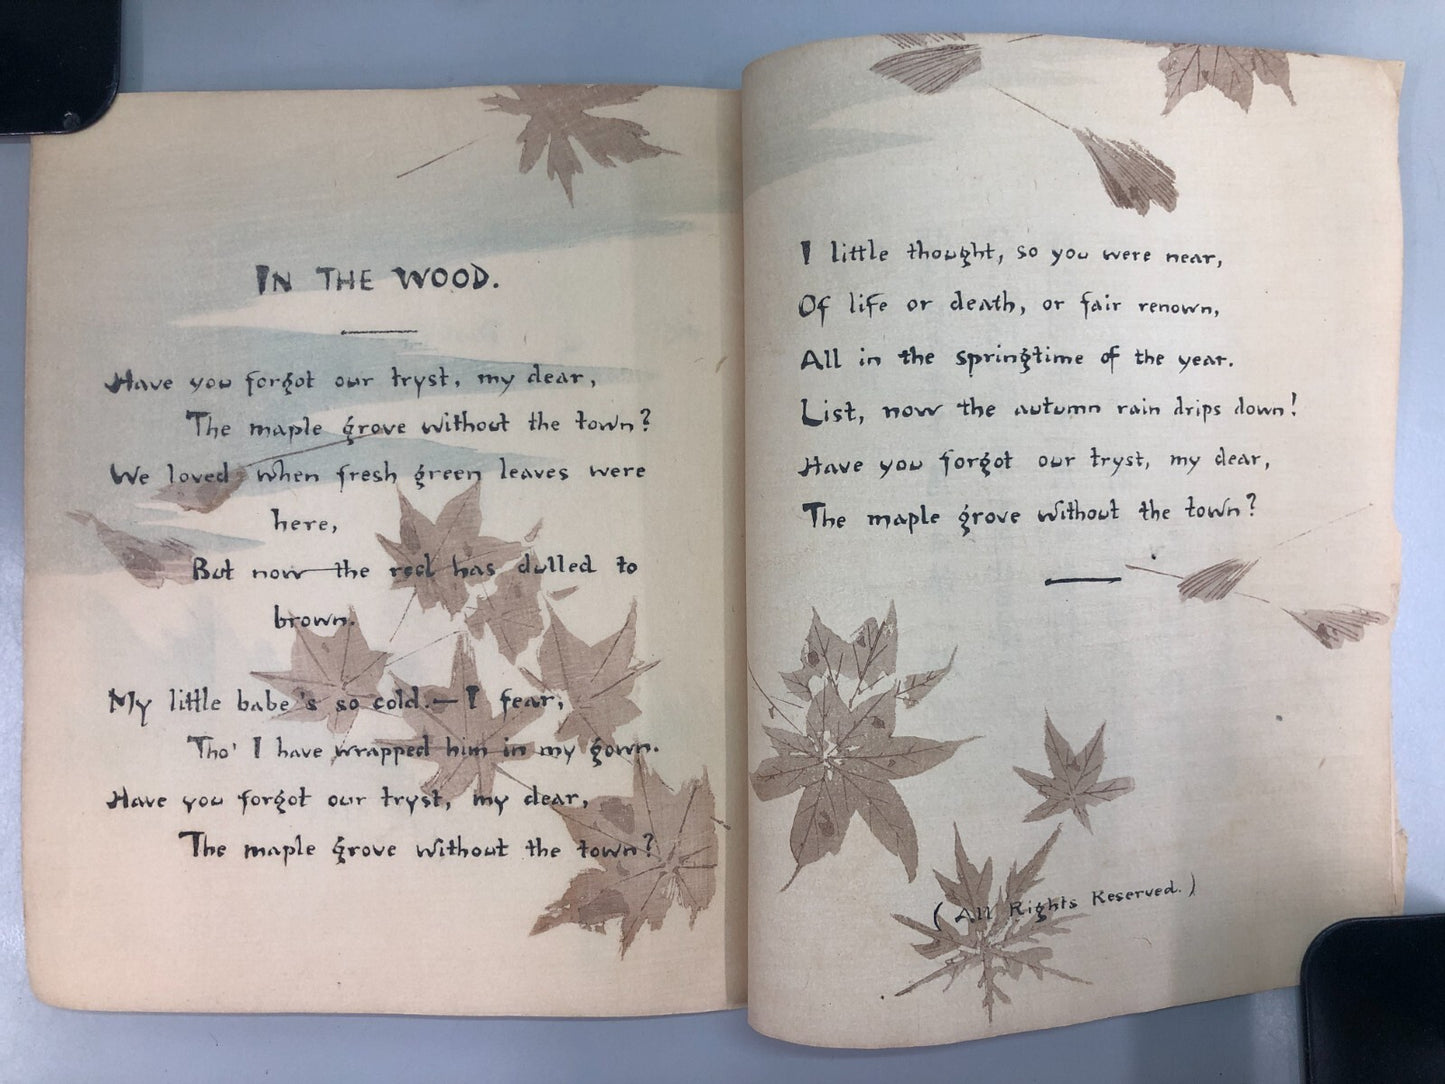 IN THE WOOD.
Have you forgot our tryst, my dear,
The maple grove without the town?
We loved when fresh green leaves were
here,
But now the red has dulled to
brown.
My little babe's so cold.— I fear,
Tho' I have wrapped him in my gown.
Have you forgot our tryst, my dear,
The maple grove without the town?
I little thought, so you were near,
Of life or death, or fair renown,
All in the springtime of the year.
List, now the autumn rain drips down!
Have you forgot our tryst, my dear,
The maple grove without the town?
(All Rights Reserved.)